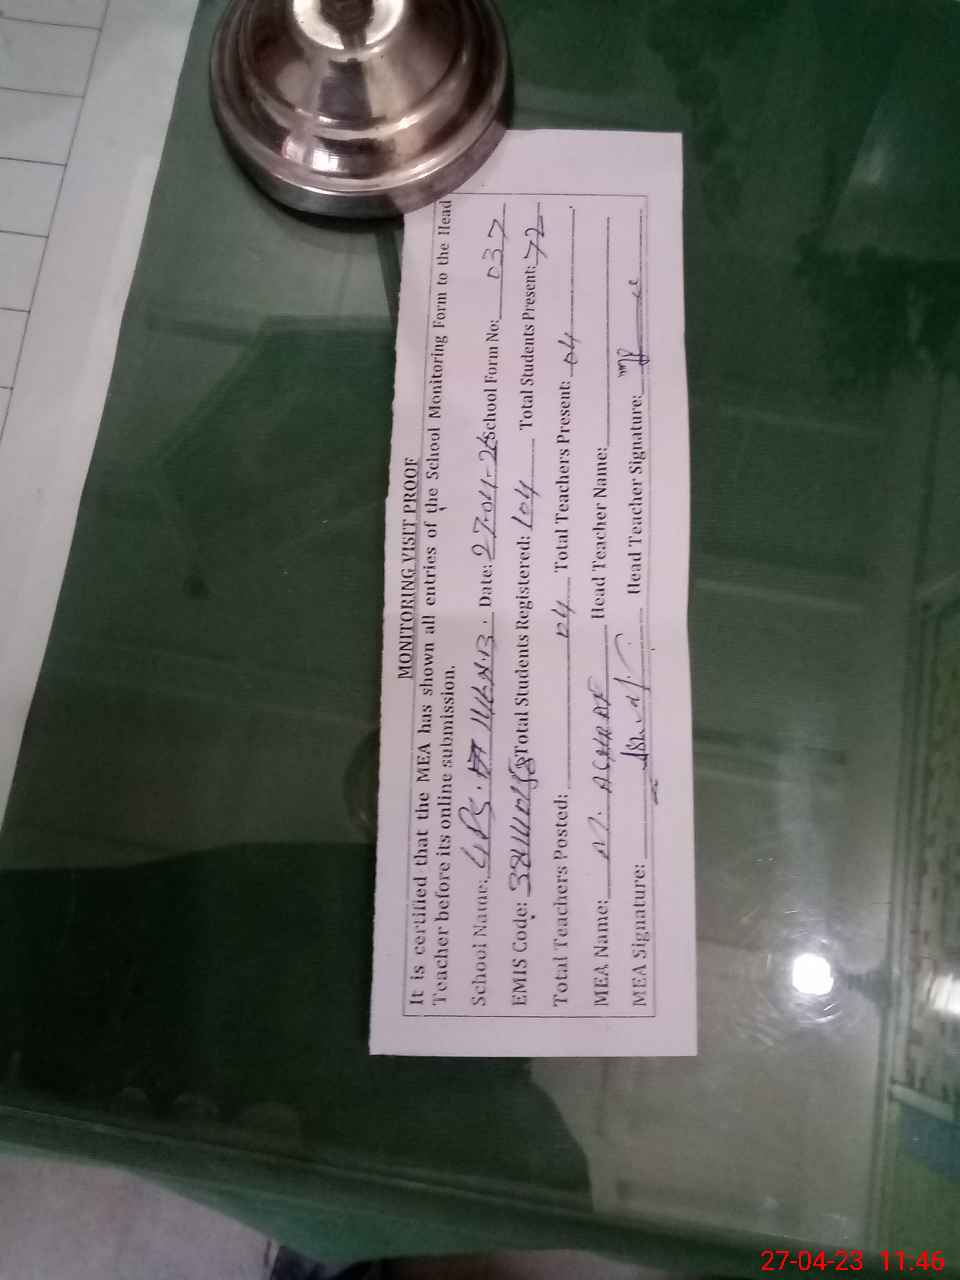 MONITORING VISIT PROOF
It is certified that the MEA has shown all entries of the School Monitoring Form to the Head
Teacher before its online submission.
School Name: GPS. Date: 27-04-26 School Form No: 037
EMIS Code: Total Students Registered: 104 Total Students Present: 72
Total Teachers Posted: 04 Total Teachers Present: 04
MEA Name: M. ASHRAF Head Teacher Name:
MEA Signature: Head Teacher Signature:
27-04-23 11:46